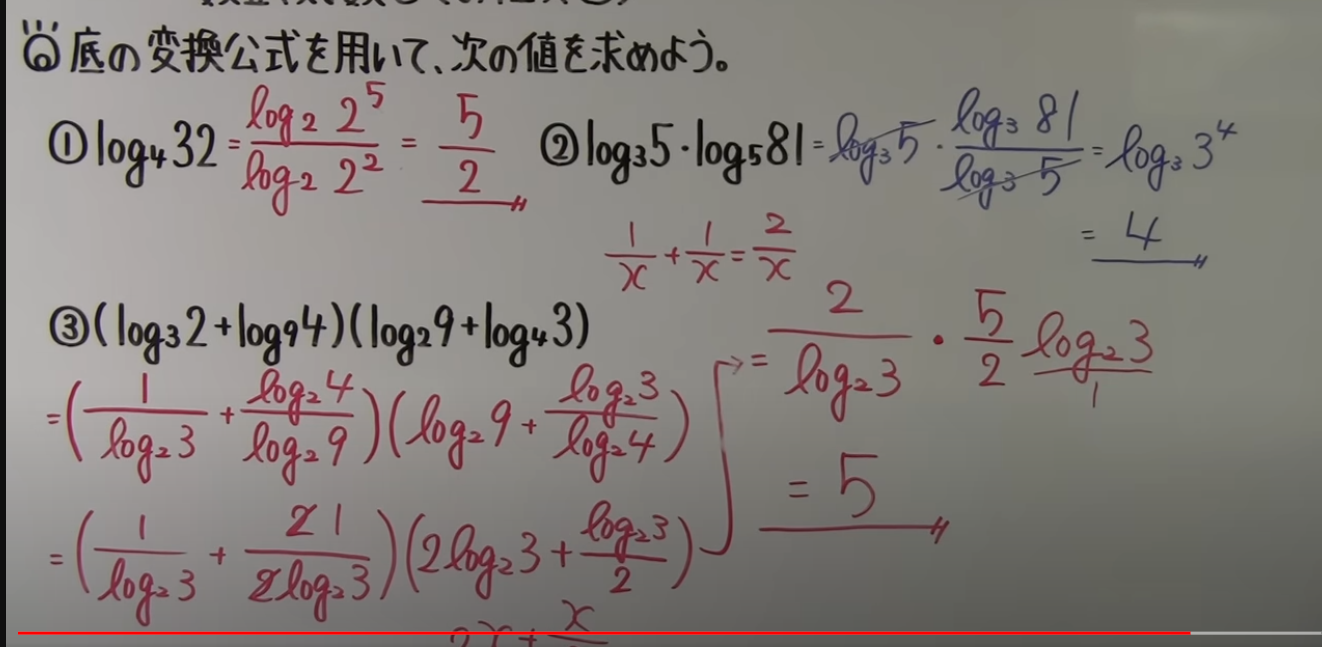 底の変換公式を用いて、次の値を求めよう。
① log₄32 = log₂2⁵/log₂2² = 5/2
② log₃5・log₅81 = log₃5・log₃81/log₃5 = log₃3⁴
= 4
1/x + 1/x = 2/x
③ (log₃2+log₉4)(log₂9+log₄3)
= (1/log₂3 + log₂4/log₂9)(log₂9 + log₂3/log₂4)
= (1/log₂3 + 2 1/2log₂3)(2log₂3 + log₂3/2)
= 2/log₂3・5/2 log₂3/1
= 5